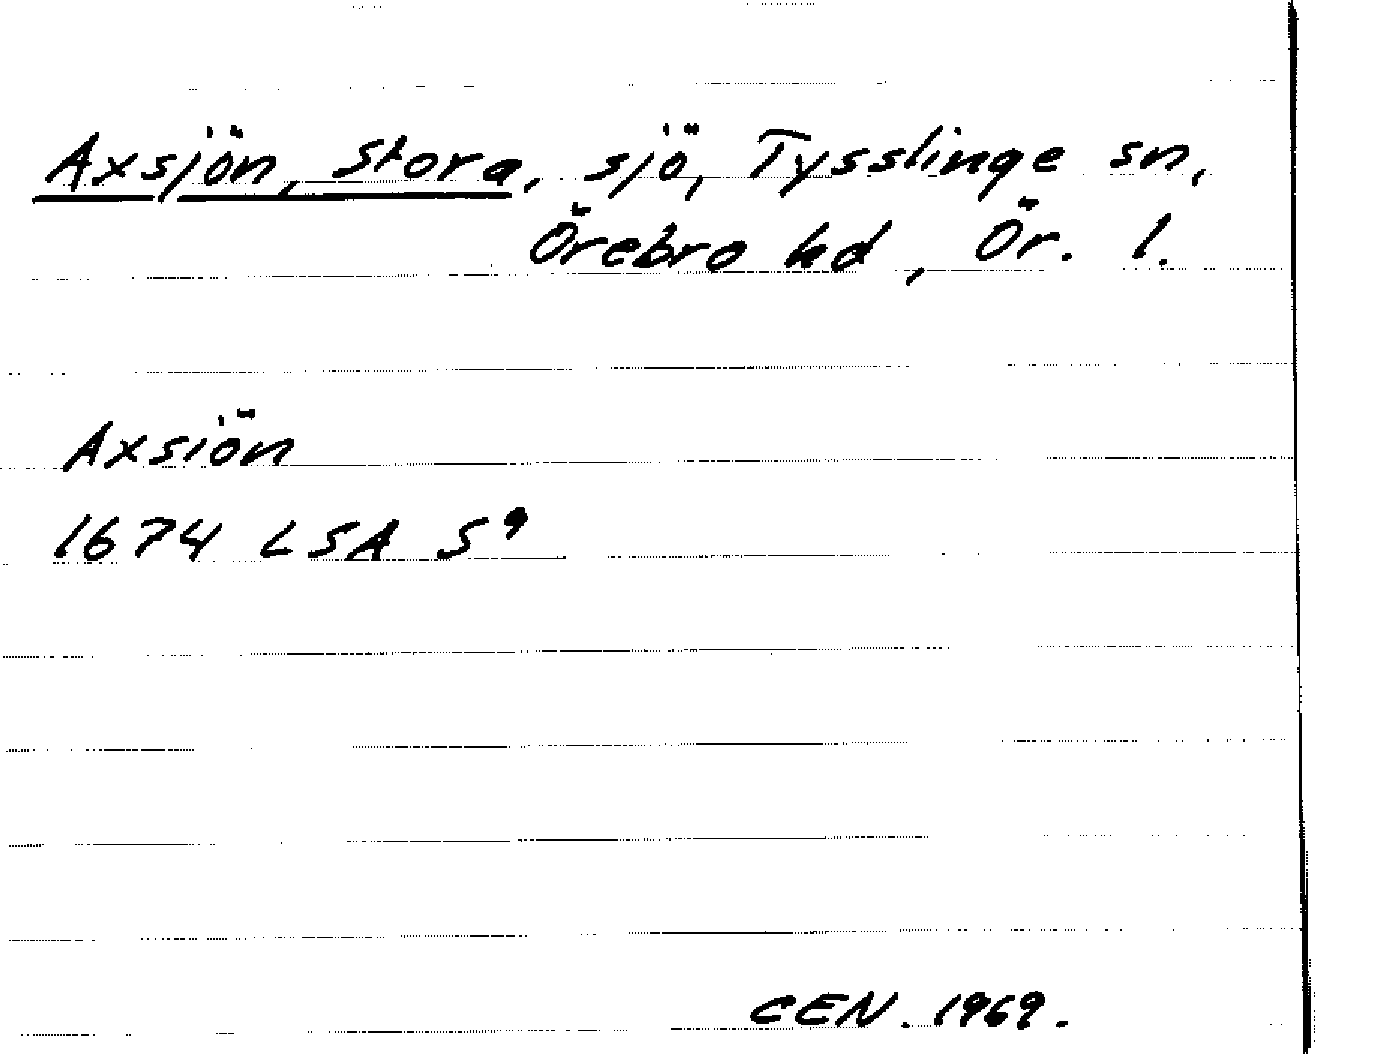 Axsjön, Stora, sjö, Tysslinge sn,
Örebro hd, Ör. l.
Axsiön
1674 LSA S⁹
CEN. 1969.